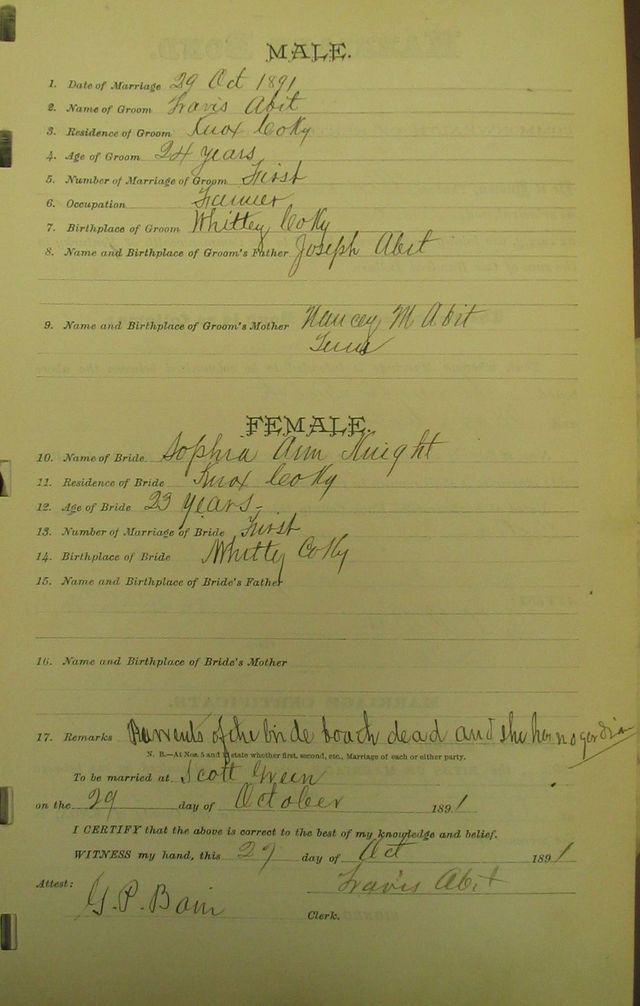 MALE.
1. Date of Marriage 29 Oct 1891
2. Name of Groom Travis Abit
3. Residence of Groom Knox Co Ky
4. Age of Groom 24 years
5. Number of Marriage of Groom First
6. Occupation Farmer
7. Birthplace of Groom Whittey Co Ky
8. Name and Birthplace of Groom's Father Joseph Abit
9. Name and Birthplace of Groom's Mother Nancey M Abit
Tenn
FEMALE.
10. Name of Bride Sophia Ann Knight
11. Residence of Bride Knox Co Ky
12. Age of Bride 23 years
13. Number of Marriage of Bride First
14. Birthplace of Bride Whitty Co Ky
15. Name and Birthplace of Bride's Father
16. Name and Birthplace of Bride's Mother
17. Remarks Parrents of the bride boath dead and she has no gardin
N. B.—At Nos. 5 and 13 state whether first, second, etc., Marriage of each or either party.
To be married at Scott Green
on the 29 day of October 1891
I CERTIFY that the above is correct to the best of my knowledge and belief.
WITNESS my hand, this 29 day of Oct 1891
Attest: Travis Abit
G. P. Bain Clerk.